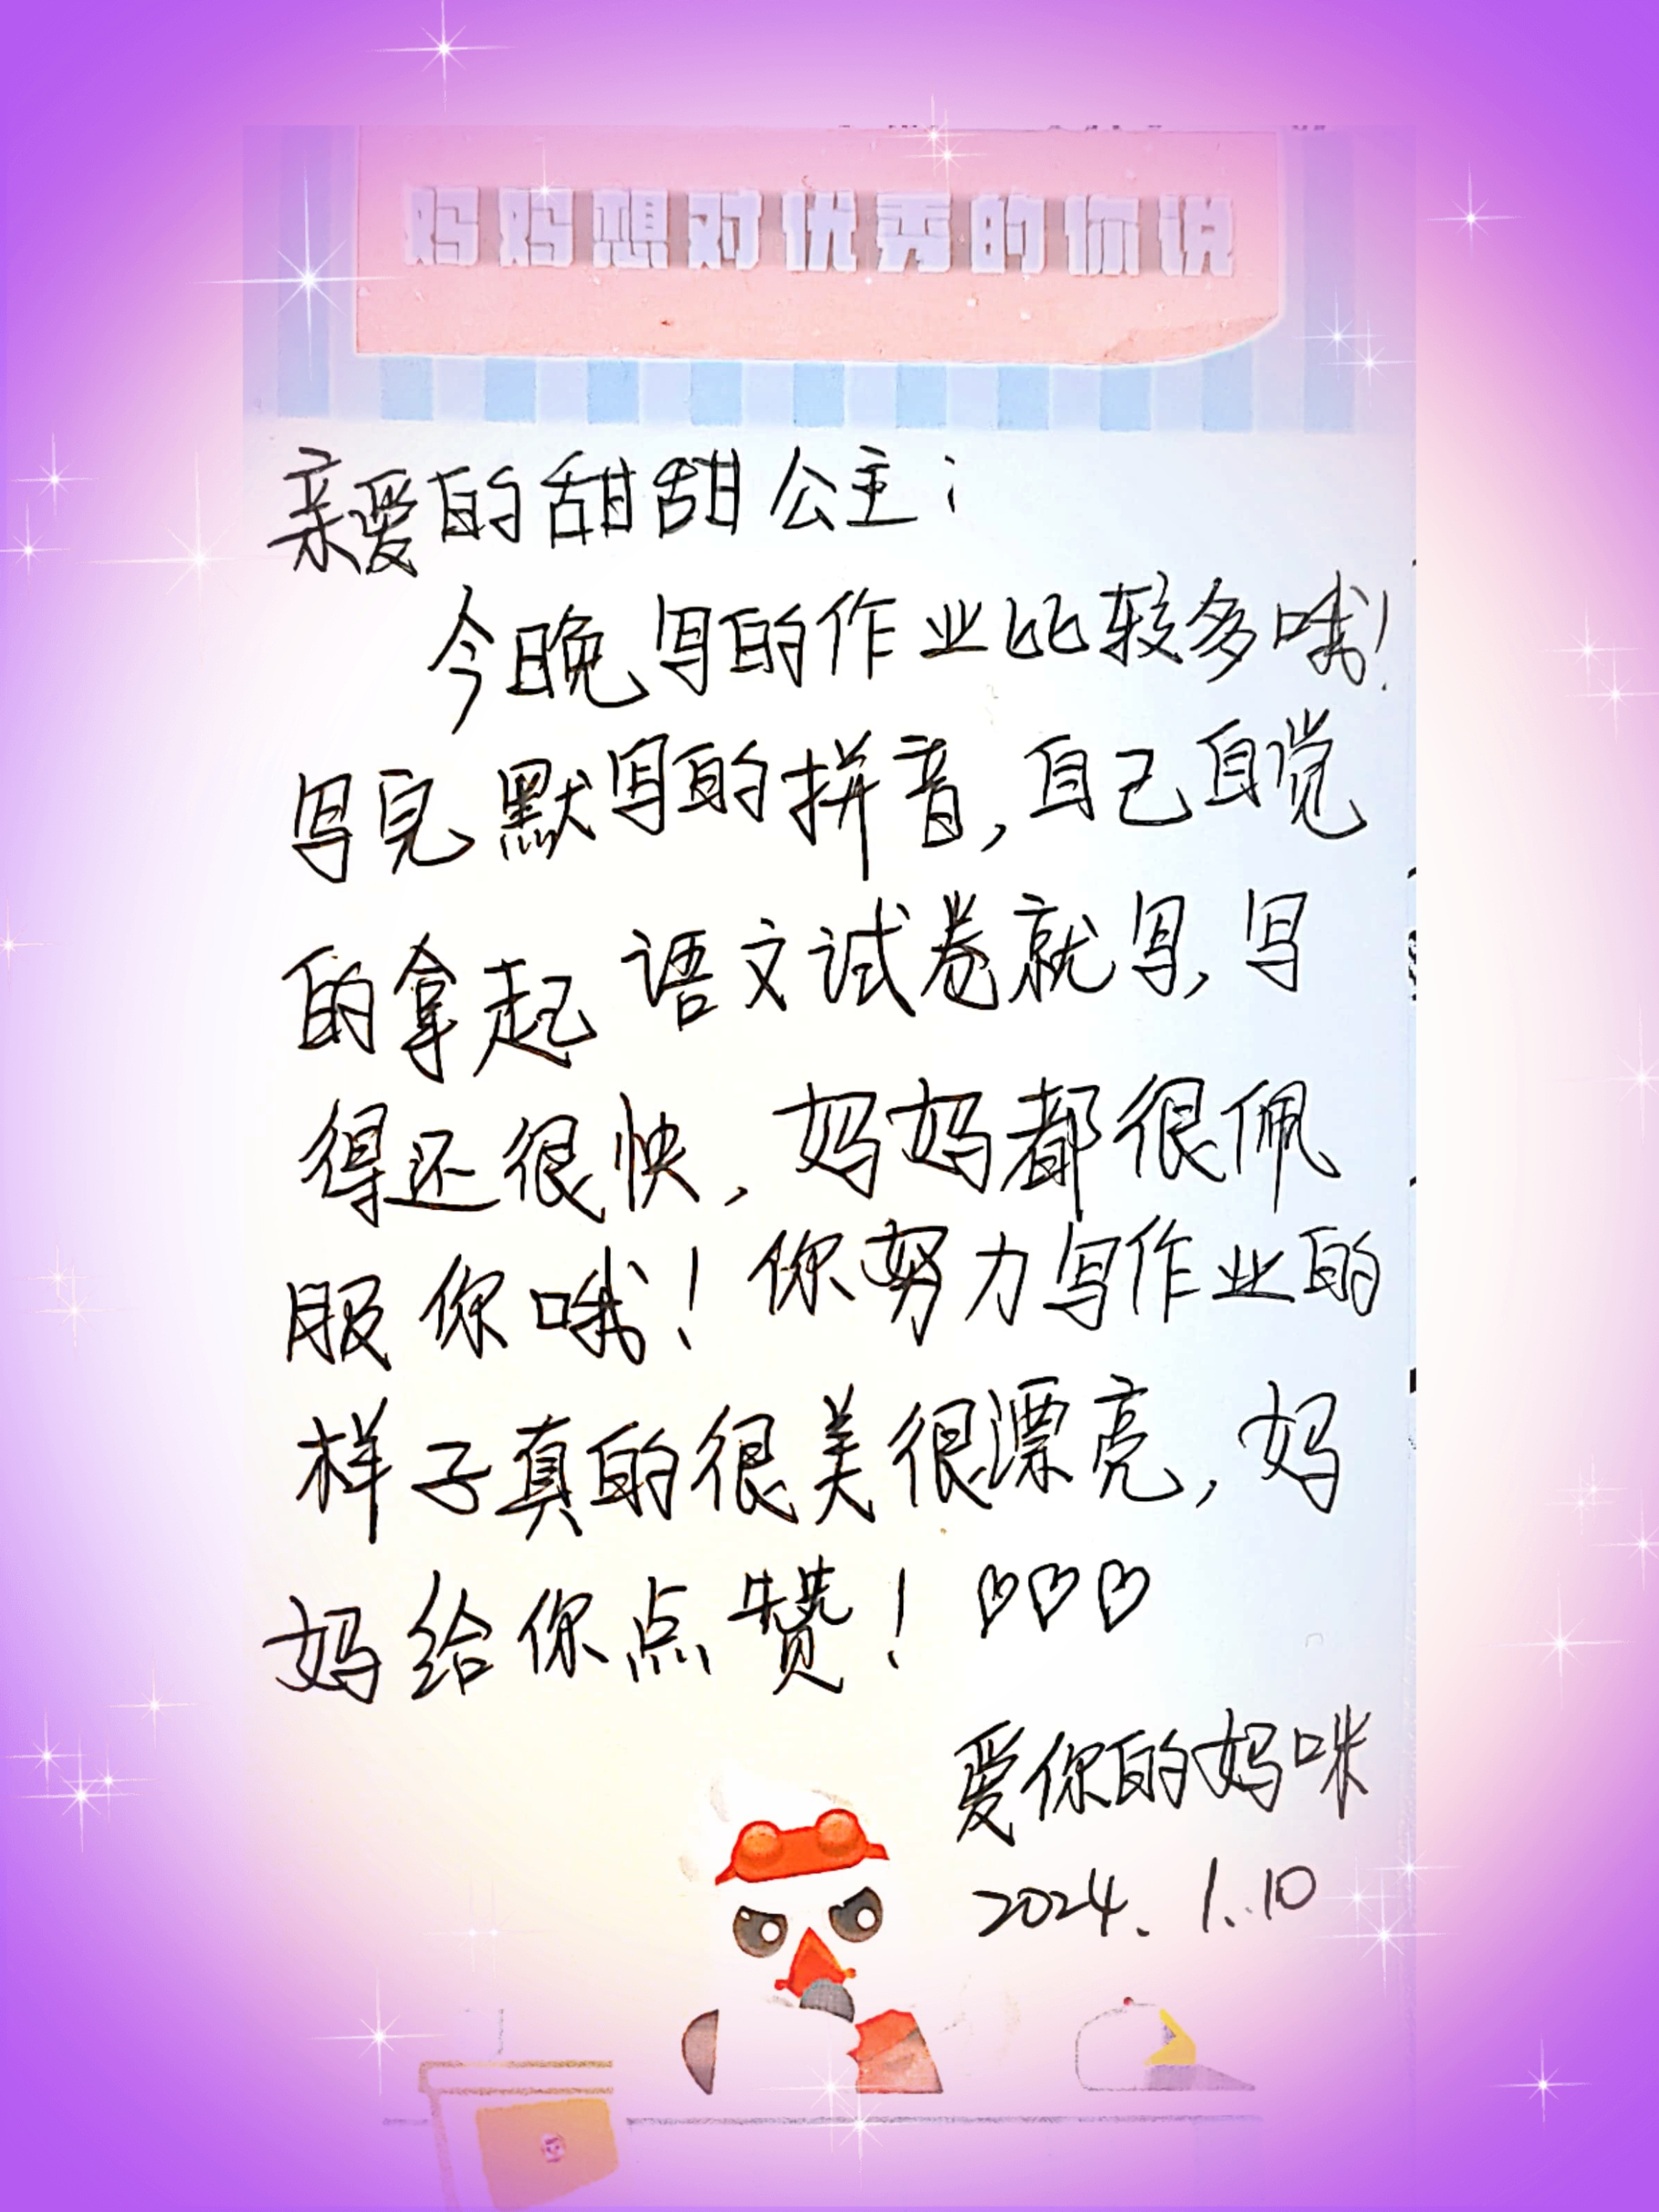 妈妈想对优秀的你说
亲爱的甜甜公主:
今晚写的作业比较多哦!
写完默写的拼音,自己自觉
的拿起语文试卷就写,写
得还很快,妈妈都很佩
服你哦!你努力写作业的
样子真的很美很漂亮,妈
妈给你点赞!♡♡♡
爱你的妈咪
2024.1.10